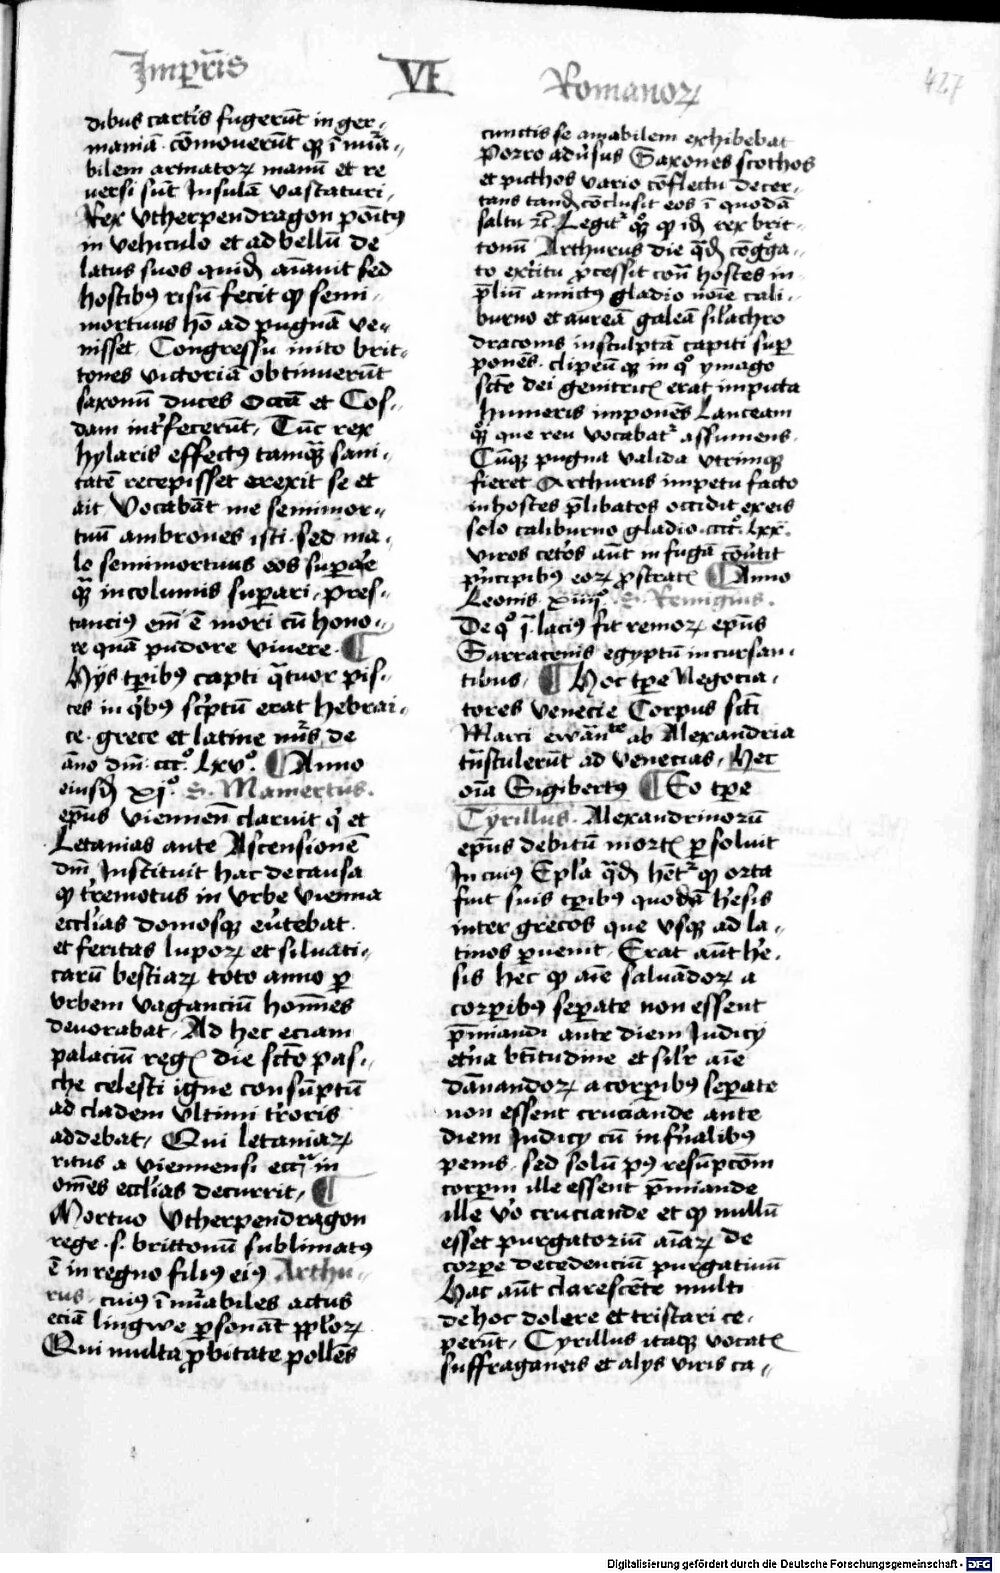 Imꝑat͛is VI Romanoꝝ 427
dibus carc̃is fugerũt in ger-
maniã cõmoverũt qꝫ ĩnũa-
bilem armatoꝝ manũ et re
versi sũt Insulã vastaturi
Rex Vtherpendragon põitꝰ
in vehiculo et ad bellũ de
latus suos quidẽ aĩavit sed
hostibꝰ risũ fecit qꝫ semi-
mortuus hõ ad pugnã ve-
nisset Congressu inito brit-
tones victoriã obtinuerũt
saxonũ duces Octã et Cos-
dam int̃fecerũt Tũc rex
hylaris effectꝰ tamqꝫ sani-
tatẽ recepisset erexit se et
ait Vocabãt me semimor-
tuũ ambrones isti sed ma-
lo semimortuus eos suꝑare
qꝫ incolumis suꝑari pres-
tanciꝰ em̃ ẽ mori cũ hono-
re quã pudore vivere
Hijs tꝑibꝰ capti q̃tuor pis-
ces in q̃bꝰ sc̃ptũ erat hebrai-
ce grece et latine nũs de
ãno dm̃ cccc° lxv° Anno
eiusdẽ xj° S. Mamertus
ep̃us viennen̄ claruit q̃ et
Letanias ante Ascensionẽ
dm̃ Instituit hac de causa
qꝫ t̃remotus in vrbe vienna
eccl̃ias domosqꝫ eṽtebat
et feritas lupoꝝ et silvati-
carũ bestiaꝝ toto anno ꝑ
vrbem vaganciũ hoĩnes
devorabat Ad hec eciam
palaciũ regꝭ die sc̃to pas-
che celesti igne consũptũ
ad cladem vltimi t̃roris
addebat Qui letaniaꝝ
ritus a viennensi ecc̃ia in
om̃es eccl̃ias decurrit
Mortuo Vtherpendragon
rege .s. brittonũ sublimatꝰ
ẽ in regno filiꝰ eiꝰ Arthu-
rus cuiꝰ ĩm̃abiles actus
eciã lingwe ꝑsonãt ppl̃oꝝ
Qui multa ꝓbitate pollẽs
cunctis se amabilem exhibebat
Porro adũsus Saxones scothos
et picthos vario cõflictu decer-
tans tandẽ cõclusit eos ĩ quodã
saltu ꝛc̃ Legit̃ qꝫ qꝫ idẽ rex brit-
tonũ Arthurus die q̃dã cõgga-
to exc̃itu ꝓcessit cont̃ hostes in
p̃liũ amictꝰ gladio noĩe cali-
burno et aureã galeã sil̃achro
draconis insculptã capiti suꝑ
ponẽs clipeũ qꝫ in q° ymago
sc̃te dei genitricꝭ erat impicta
humeris imponẽs Lanceam
qꝫ que reu vocabat̃ assumens
Cũqꝫ pugna valida vtrimqꝫ
fieret Arthurus impetu facto
in hostes p̃libatos occidit ex eis
solo caliburno gladio cccc° lxx
viros cet̃os aũt in fugã cõṽtit
pñcipibꝰ eoꝝ ꝓstratꝭ Anno
Leonis xiiij° S. Remigius
De q° ĩ laciꝰ fit remoꝝ ep̃us
Sarracenis egyptũ incursan-
tibus Hoc tꝑe Negocia-
tores venecie Corpus sc̃ti
Marci ewãn̄te ab Alexandria
tñstulerũt ad venecias Hec
oĩa Sigibertꝰ Eo tꝑe
Cyrillus Alexandrinorũ
ep̃us debitũ mortꝭ ꝑsoluit
In cuiꝰ Epl̃a q̃dã hẽt̃ qꝫ orta
fuit suis tꝑibꝰ quodã h̃esis
inter grecos que vsqꝫ ad la-
tinos ꝑuenit Erat aũt h̃e-
sis hec qꝫ aĩe salvãdoꝝ a
corꝑibꝰ seꝑate non essent
p̃miandi ante diem Iudicij
et̃na btĩtudine et sil̃r aĩe
dãnandoꝝ a corꝑibꝰ seꝑate
non essent cruciande ante
diem Iudicij cũ infñalibꝰ
penis sed solũ pꝰ resũpcõm
corꝑm ille essent p̃miande
ille vo cruciande et qꝫ nullũ
esset purgatoriũ aĩaꝝ de
corꝑe decedenciũ purgatiuũ
Hac aũt clarescẽte multi
de hoc dolere et tristari ce-
perũt Cyrillus itaqꝫ vocatꝭ
suffraganeis et alijs viris ca-
Digitalisierung gefördert durch die Deutsche Forschungsgemeinschaft - DFG